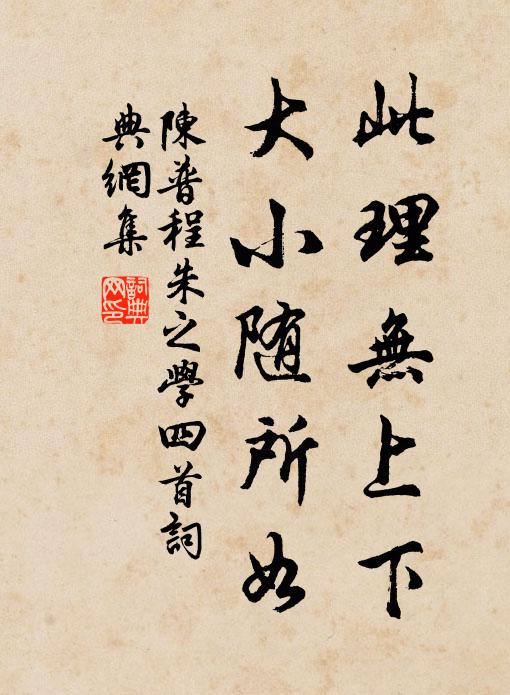 此理無上下
大小随所如
陳普程朱之學四首詞
典網集
詞典
网印